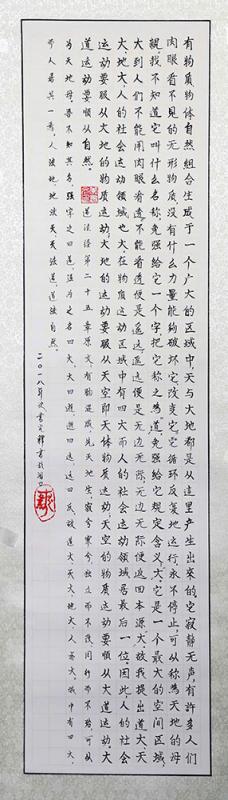 有物质物体自然组合生成于一个广大的区域中,天与大地都是从这里产生出来的,它寂静无声,有许多人们
肉眼看不见的无形物质,没有什么力量能够破坏它,改变它,它循环反复地运行,永不停止,可以称为天地的母
親,我不知道它叫什么名称,免强给它一个字,把它称之为“道”,免强给它规定含义大,它是一个最大的空间区域,
大到人们不能用肉眼看透,不能看透便是遥远,遥远便是无边无际,无边无际便返回本源大,故我提出道大,天
大,地大,人的社会运动领域也大,在物质运动区域中有四大,而人的社会运动领域居最后一位,因此,人的社会
运动要顺从大地的物质运动,大地的运动要顺从天空即天体物质运动,天空的物质运动要顺从大道运动,大
道运动要顺从自然。道法经第二十五章原文:有物混成先天地生,寂兮寥兮,独立而不改,周行而不殆,可以
为天地母,吾不知其名,强字之曰道,强为之名曰大,大曰逝,逝曰远,远曰反,故道大,天大,地大,人亦大,域中有四大,
而人居其一焉,人法地,地法天,天法道,道法自然。
二〇一八年